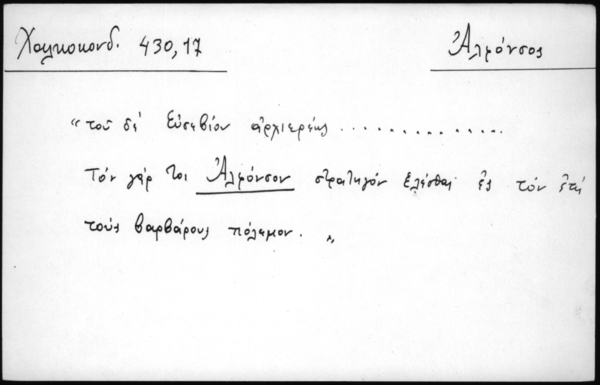 Χαλκοκονδ. 430,17
Ἀλμόνσος
“ τοῦ δὲ Εὐσεβίου ἀρχιερέως ..............
Τόν γάρ τοι Ἀλμόνσον στρατηγόν ἑλέσθαι ἐς τόν ἐπί
τούς βαρβάρους πόλεμον. „